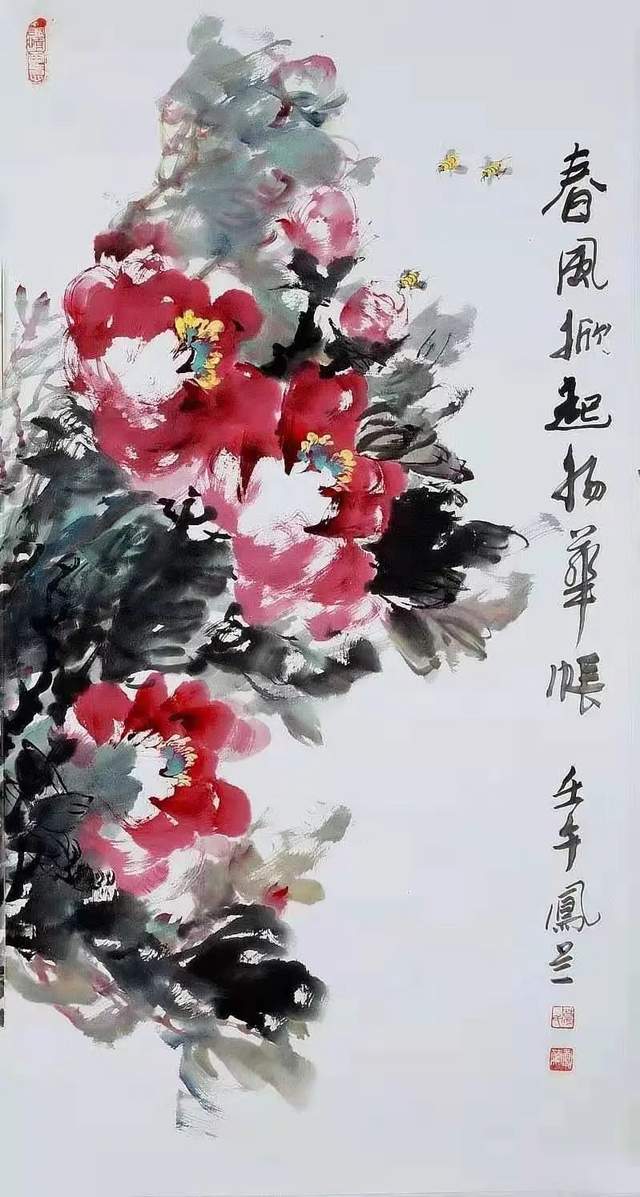 春風掀起扬華帳
壬午鳳兰